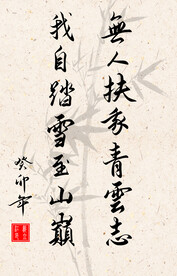 無人扶我青雲志
我自踏雪至山巔
癸卯年